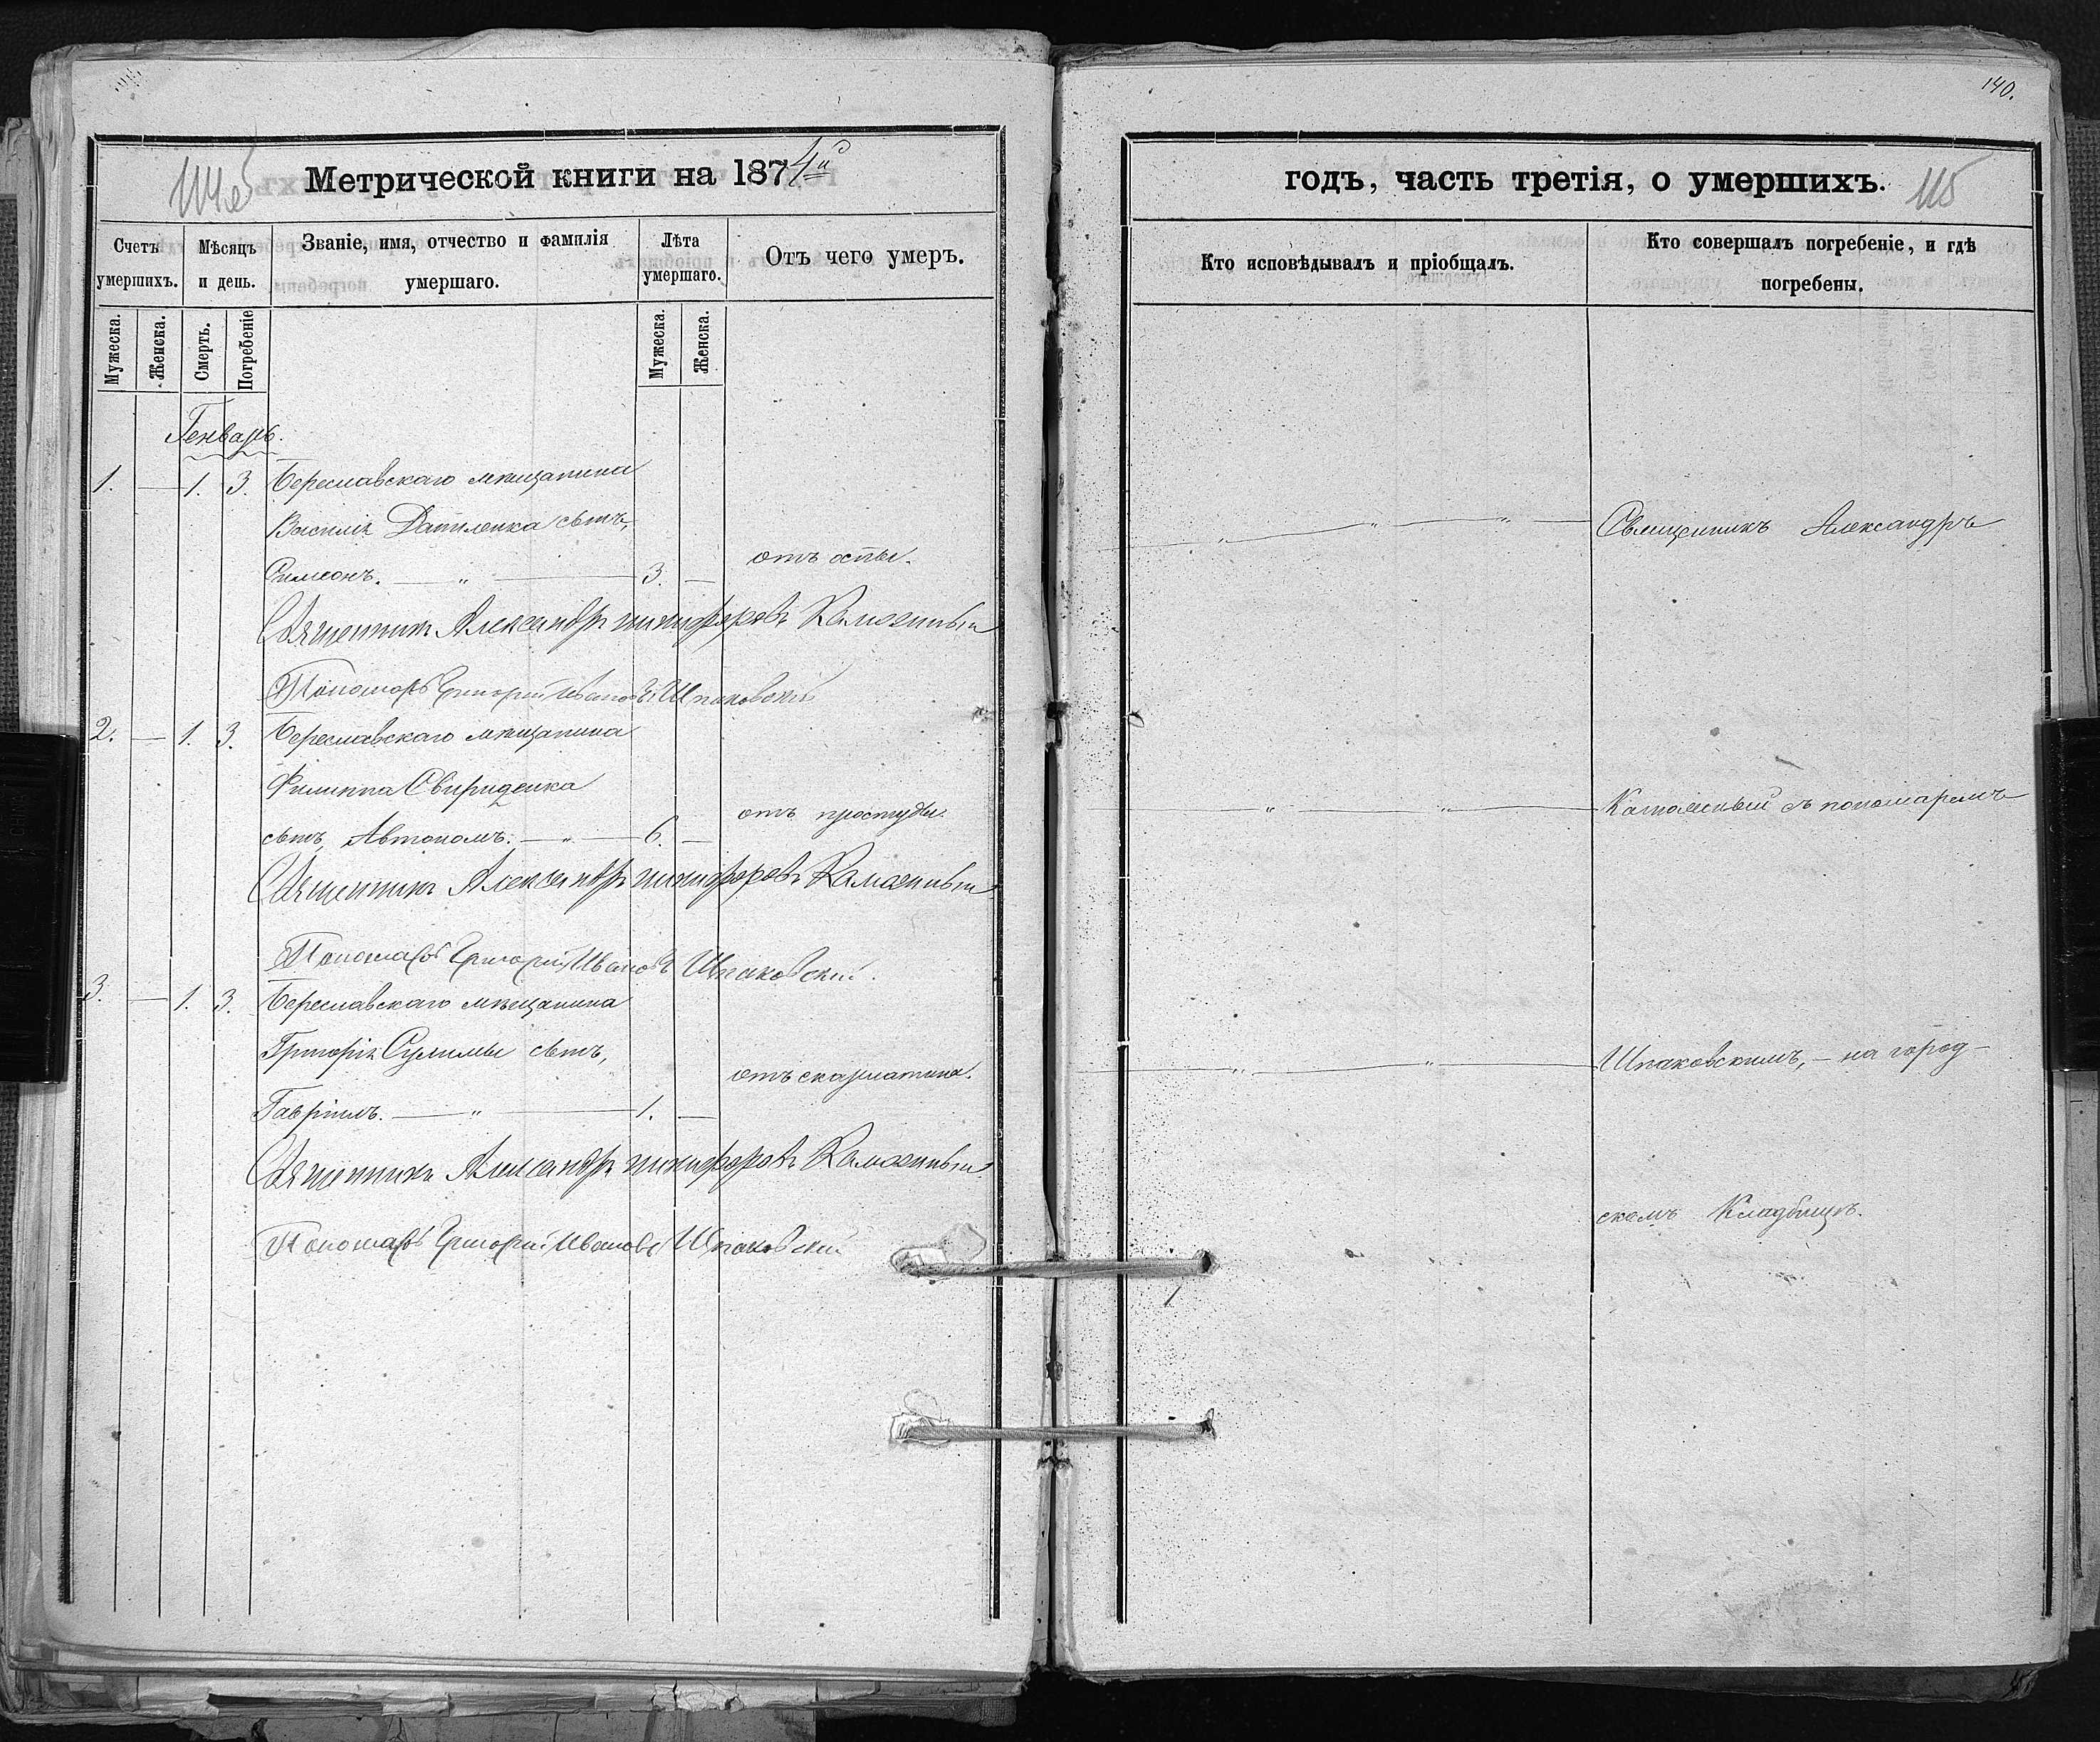 140.
Метрической книги на 1874й
годъ, часть третія, о умершихъ.
115
Счетъ умершихъ.
Мѣсяцъ и день.
Званіе, имя, отчество и фамилія умершаго.
Лѣта умершаго.
Отъ чего умеръ.
Кто исповѣдывалъ и пріобщалъ.
Кто совершалъ погребеніе, и гдѣ погребены.
Мужеска.
Женска.
Смерть.
Погребеніе
Мужеска.
Женска.
Генварь.
1. — 1. 3. Береславскаго мѣщанина
Василія Даниленка сынъ,
Симеонъ. — „ — 3. — отъ оспы.
Священникъ Александръ Никифоровъ
Пономарь Григорій Ивановъ Шпаковскій
2. — 1. 3. Береславскаго мѣщанина
Филиппа Свириденка
сынъ, Автономъ. — „ — 6. — отъ простуды.
Священникъ Александръ Никифоровъ
Пономарь Григорій Ивановъ Шпаковскій.
3. — 1. 3. Береславскаго мѣщанина
Григорія Сулимы сынъ,
Гавріилъ. — „ — 1. — отъ скарлатина.
Священникъ Александръ Никифоровъ
Пономарь Григорій Ивановъ Шпаковскій
Священникъ Александръ
съ пономаремъ
Шпаковскимъ, — на город-
скомъ Кладбищѣ.